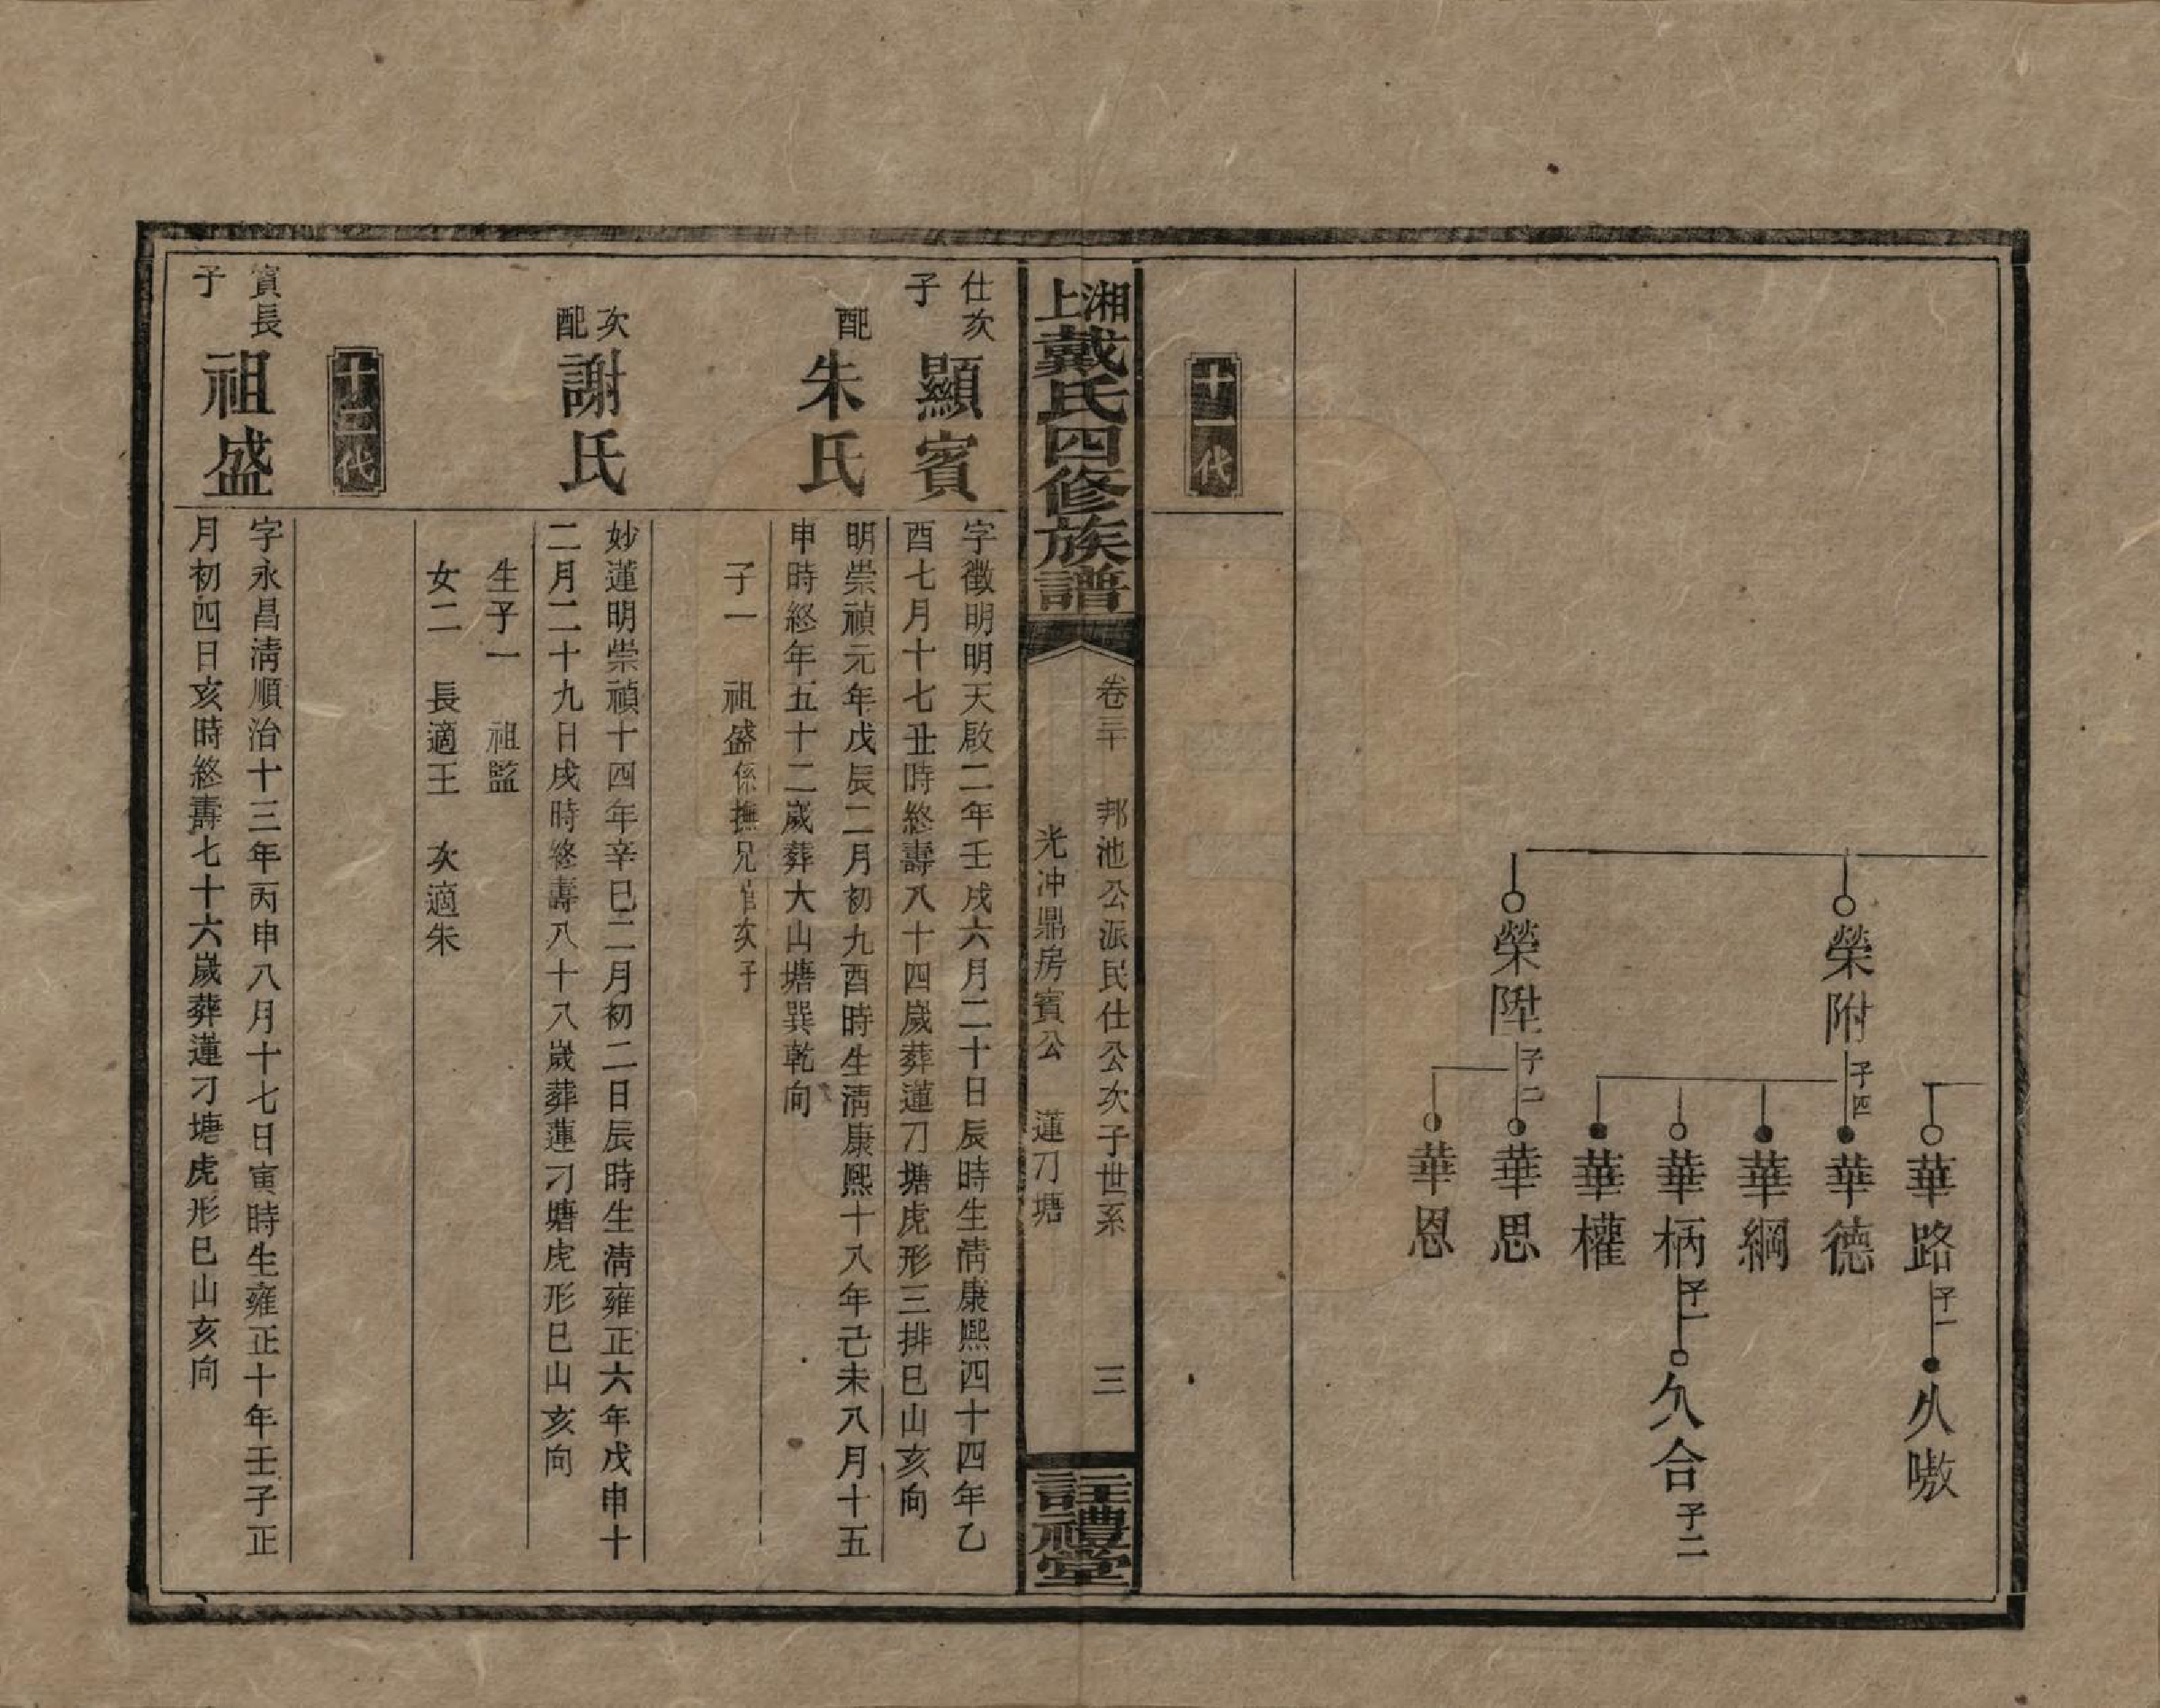 榮附 子四
榮陞 子二
華路 子一
華德
華綱
華柄 子一
華權
華思
華恩
久嗷
久合 子二
十一代
湘上戴氏四修族譜
卷三十 邦池公派民仕公次子世系 三
光冲鼎房賓公 蓮刀塘
註禮堂
仕次子 顯賓
字徵明明天啟二年壬戌六月二十日辰時生清康熙四十四年乙
酉七月十七丑時終壽八十四歲葬蓮刀塘虎形三排巳山亥向
配 朱氏
明崇禎元年戊辰二月初九酉時生清康熙十八年己未八月十五
申時終年五十二歲葬大山塘巽乾向
子一 祖盛係撫兄次子
次配 謝氏
妙蓮明崇禎十四年辛巳二月初二日辰時生清雍正六年戊申十
二月二十九日戌時終壽八十八歲葬蓮刁塘虎形巳山亥向
生子一 祖監
女二 長適王 次適朱
十二代
賓長子 祖盛
字永昌清順治十三年丙申八月十七日寅時生雍正十年壬子正
月初四日亥時終壽七十六歲葬蓮刁塘虎形巳山亥向